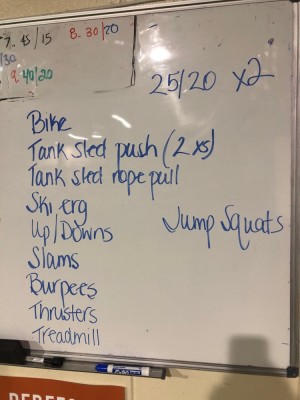 7. 45/15 8. 30/20
/30
9. 40/20
25/20 x2
Bike
Tank sled push (2 xs)
Tank sled rope pull
Ski erg
Up/Downs
Jump Squats
Slams
Burpees
Thrusters
Treadmill
EXPO